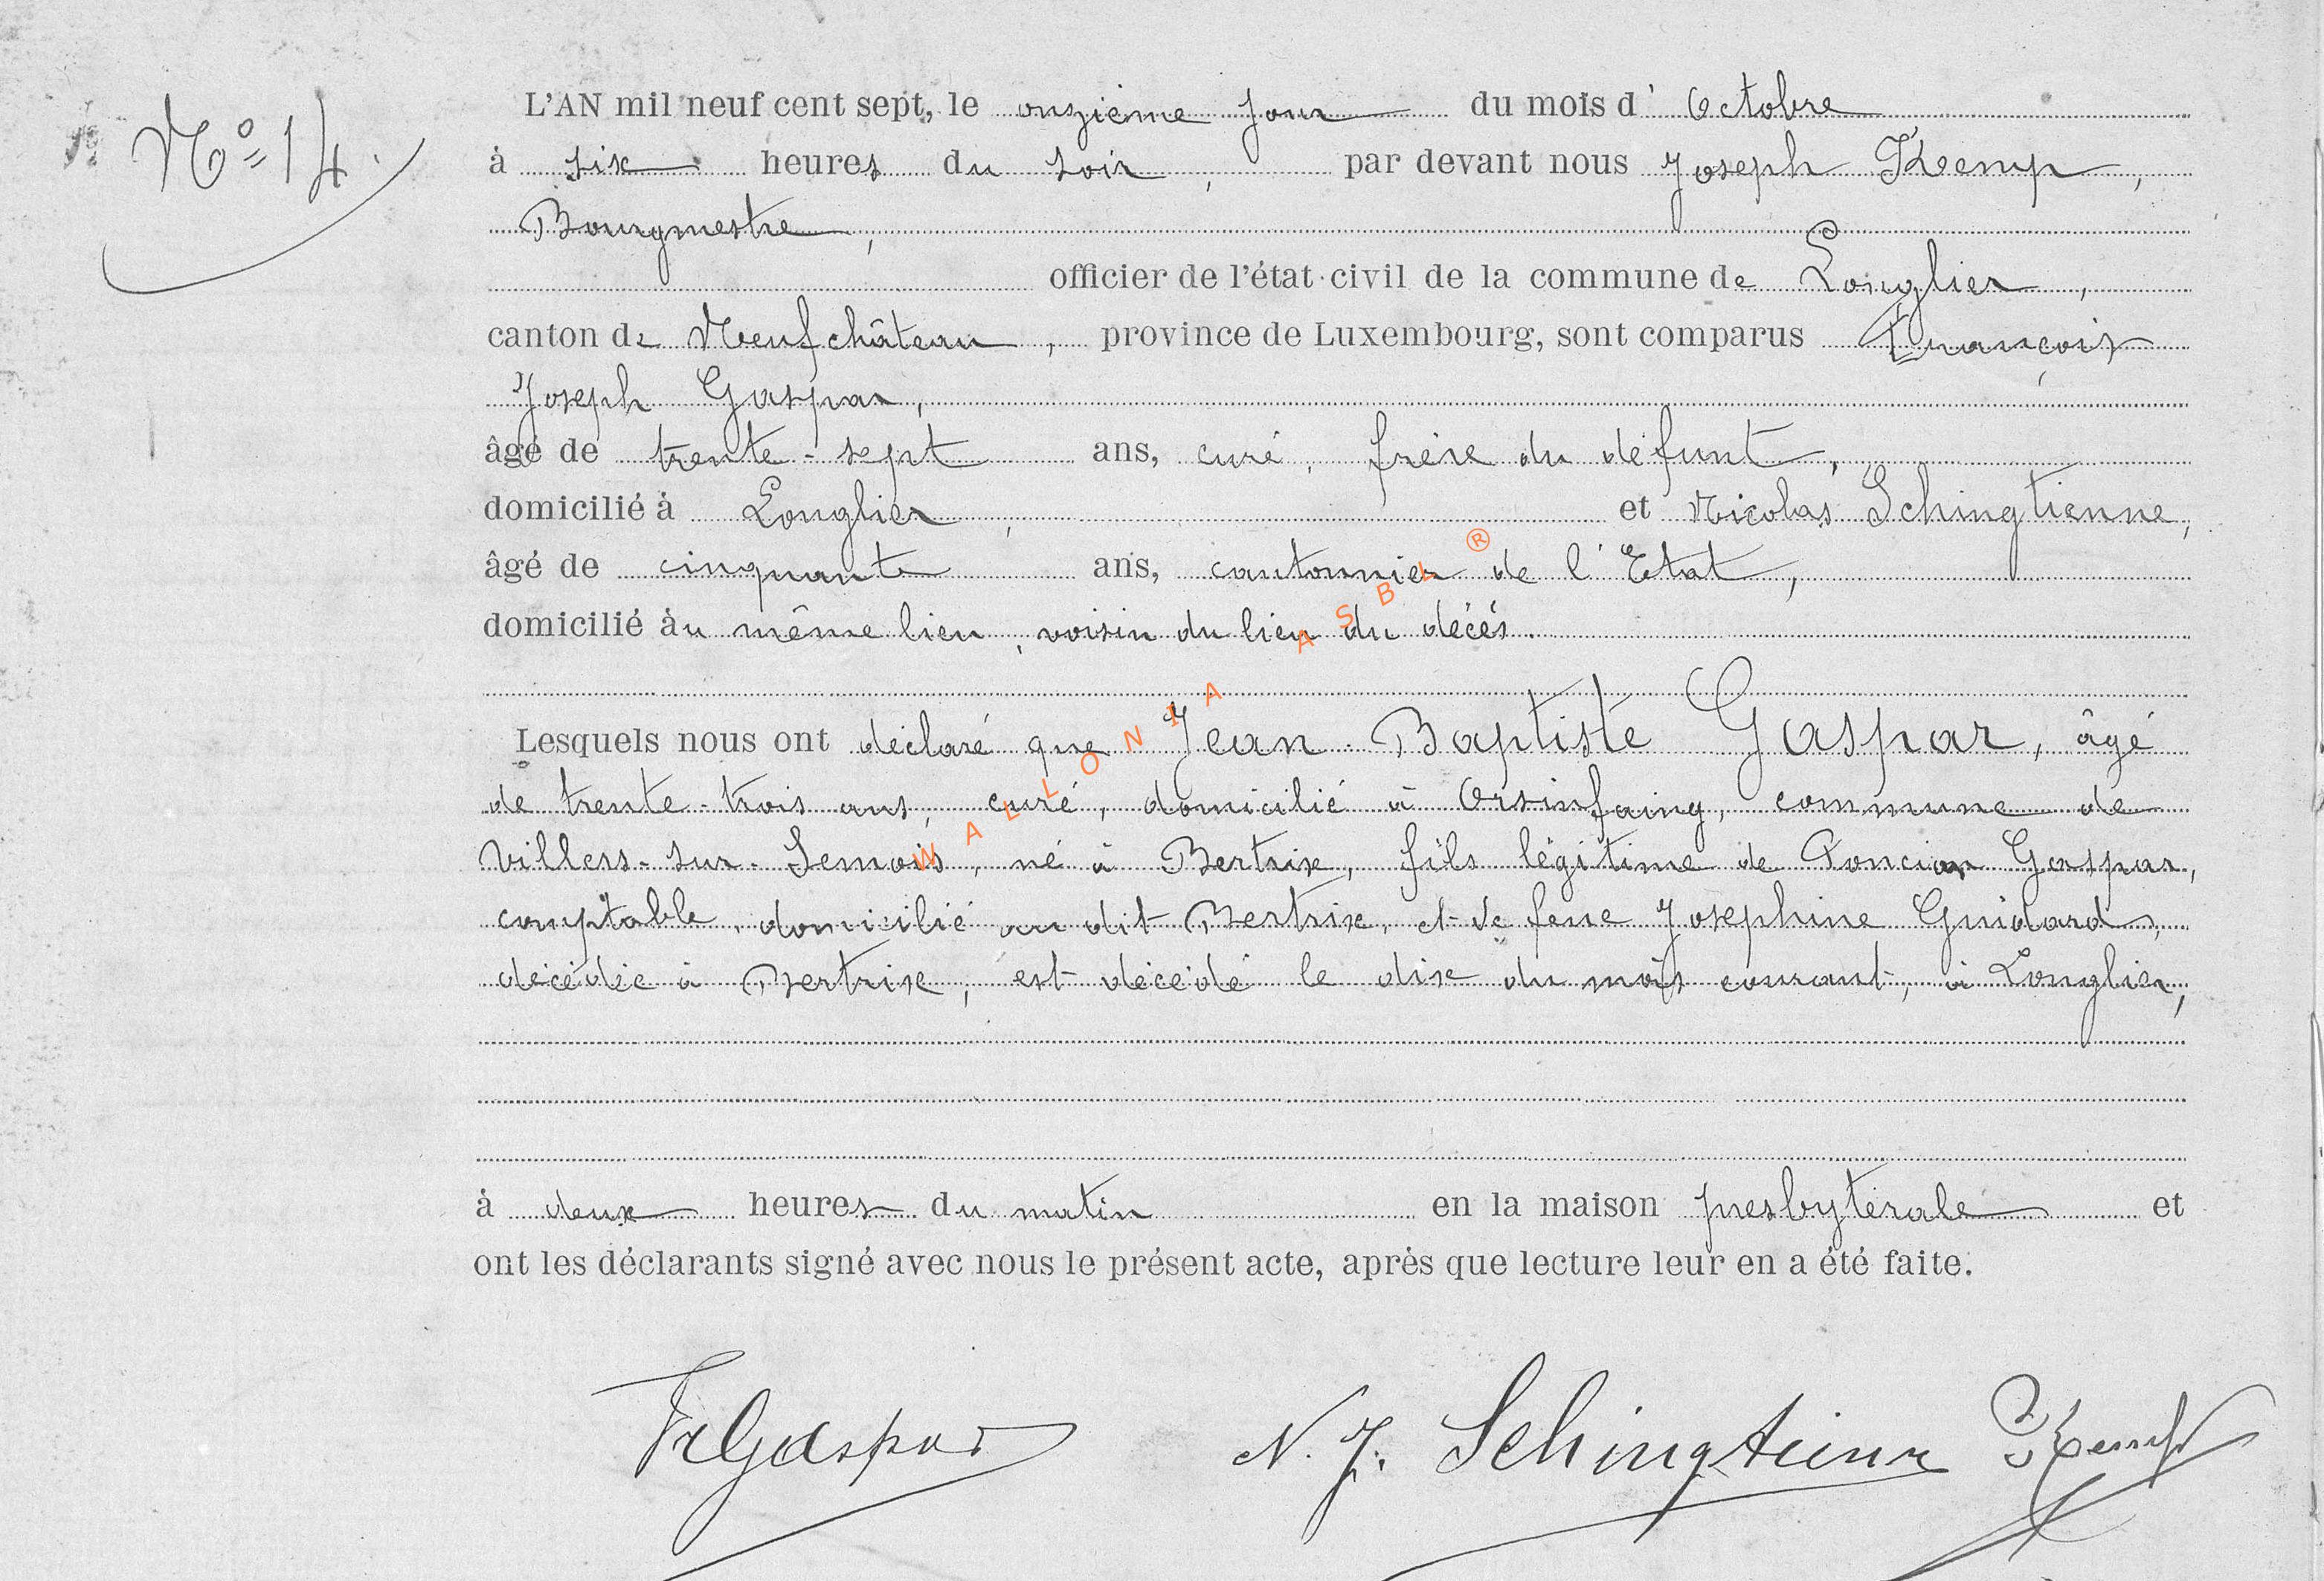 N° 14.
L'AN mil neuf cent sept, le onzième jour du mois d' Octobre
à six heures du soir, par devant nous Joseph Kemp,
Bourgmestre,
officier de l'état civil de la commune de Longlier,
canton de Neufchâteau, province de Luxembourg, sont comparus François
Joseph Gaspar,
âgé de trente-sept ans, curé, frère du défunt,
domicilié à Longlier, et Nicolas Schingtienne,
âgé de cinquante ans, cantonnier de l'Etat,
domicilié au même lieu, voisin du lieu du décés.
Lesquels nous ont déclaré que Jean-Baptiste Gaspar, âgé
de trente-trois ans, curé, domicilié à Orsinfaing, commune de
Villers-sur-Semois, né à Bertrix, fils légitime de Poncian Gaspar,
comptable, domicilié au dit Bertrix, et de feue Joséphine Guidard,
décédée à Bertrix, est décédé le dix du mois courant, à Longlier,
à deux heures du matin en la maison presbytérale et
ont les déclarants signé avec nous le présent acte, après que lecture leur en a été faite.
Fr Gaspar N. J. Schingtienne J Kemp
WALLONIA ASBL ®